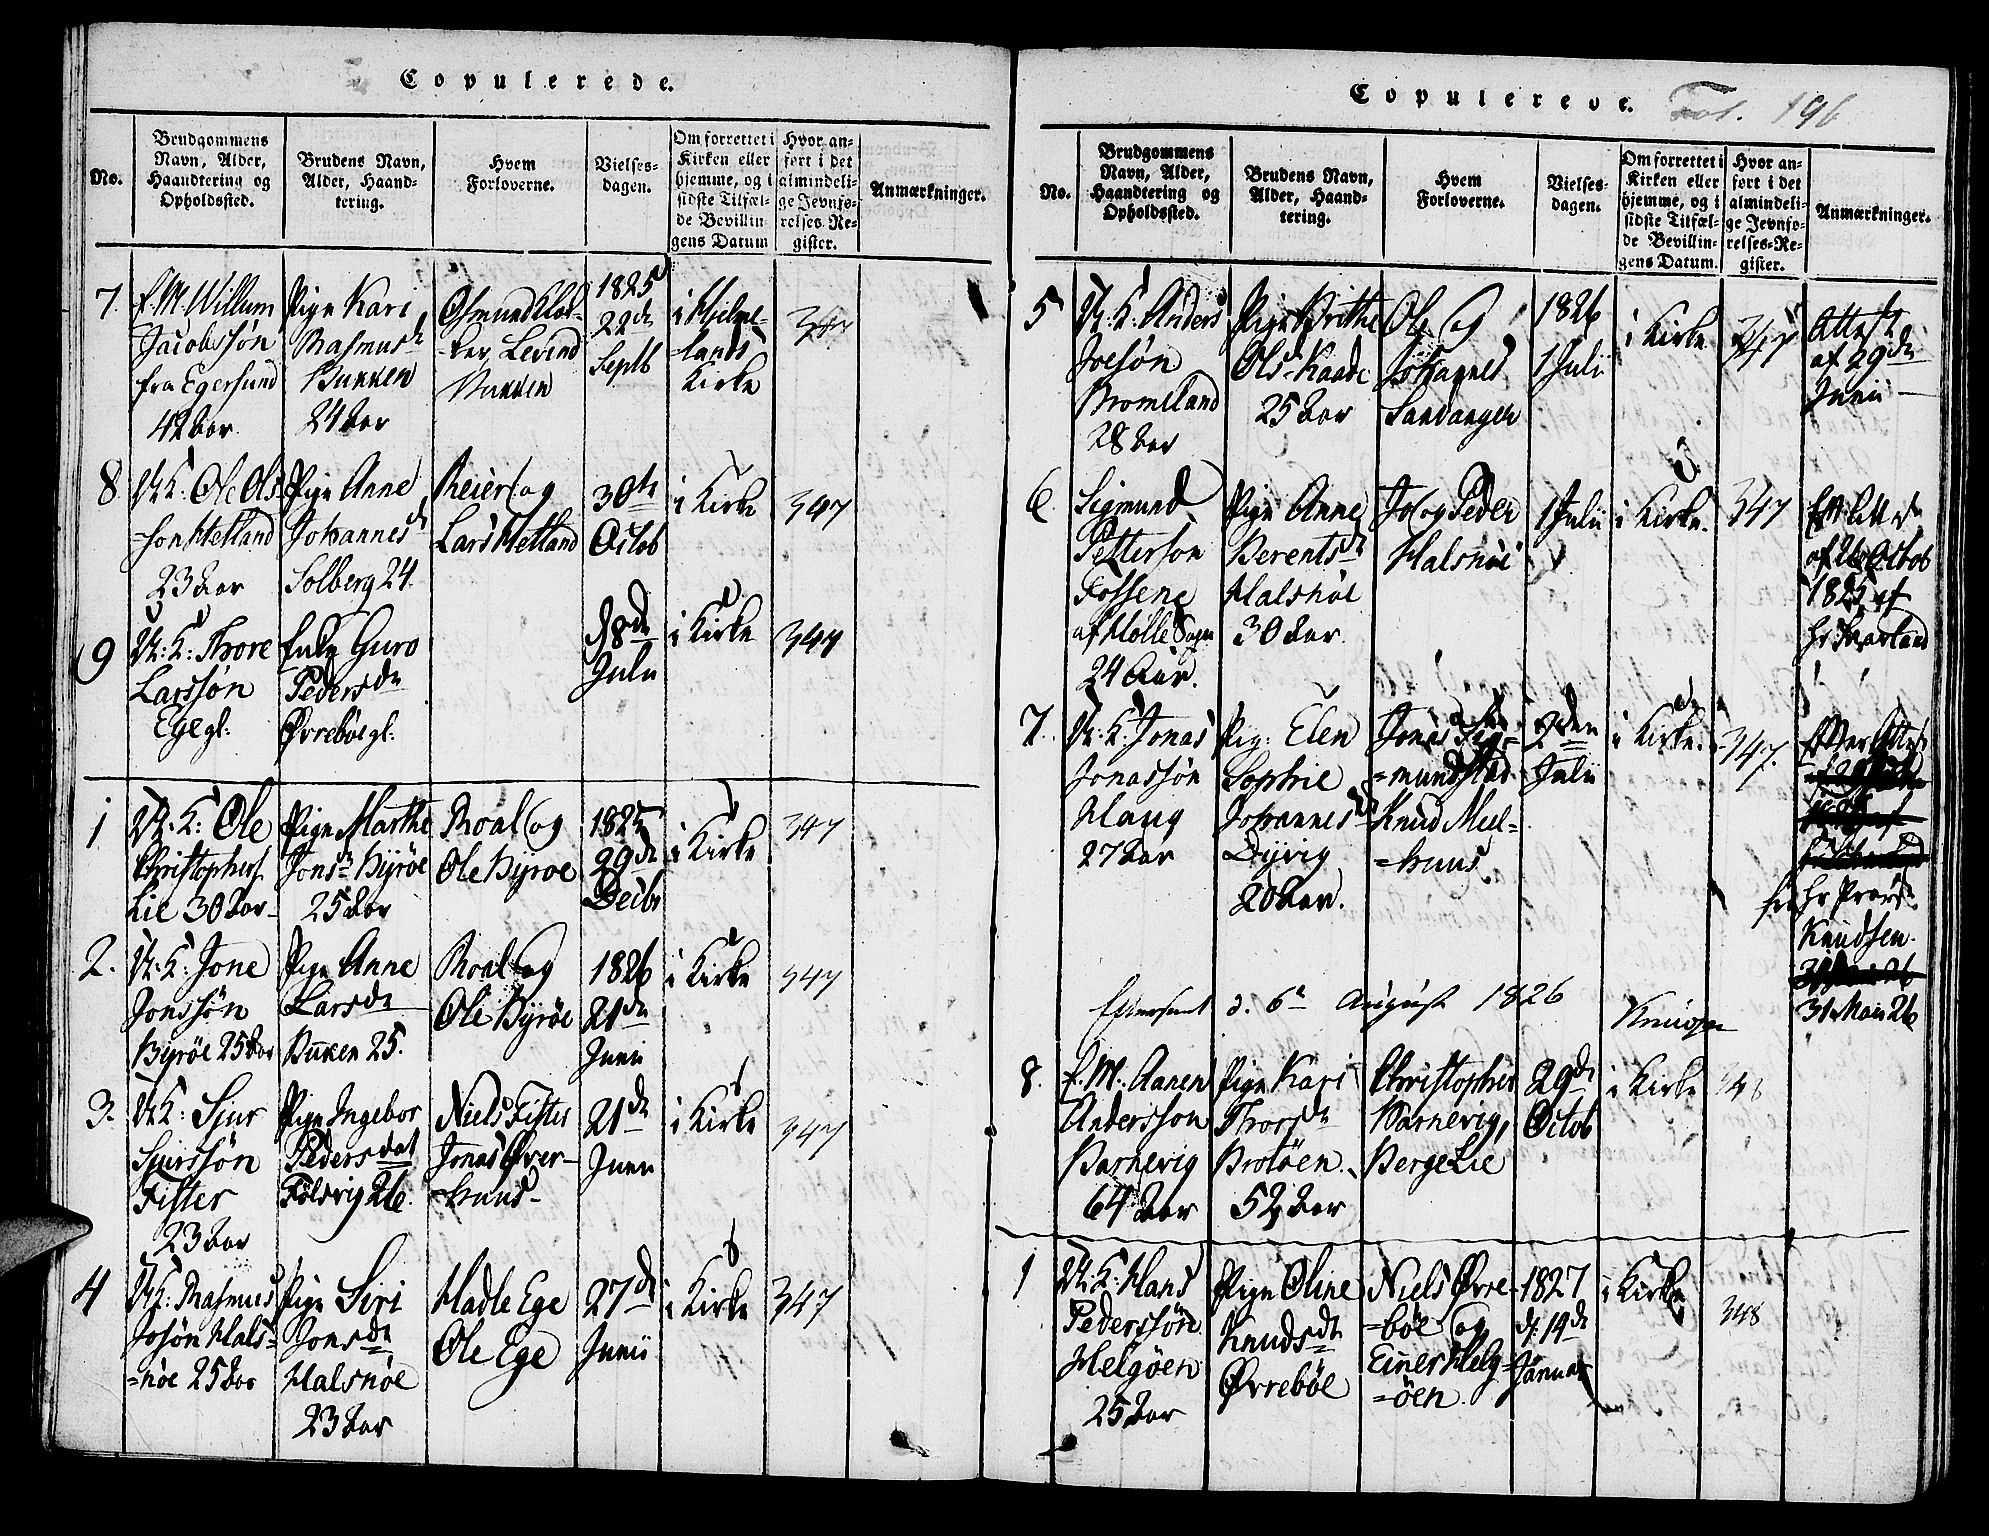 Copulerede.
No.
Brudgommens Navn, Alder, Haandtering og Opholdssted.
Brudens Navn, Alder, Haandtering.
Hvem Forloverne.
Vielsesdagen.
Om forrettet i Kirken eller hjemme, og i sidste Tilfælde Bevillingens Datum
Hvor anført i det almindelige Jevnførelses-Register.
Anmærkninger.
7.
E. M. Willum
Jacobssøn
fra Egersund
42 Aar
Pige Kari
Rasmusd
Bukken
24 Aar
Osmund
Levind
Bukken
1825
22de
Septb
i Hjelme-
lands
Kirke
347
8.
U. K: Ole Ols
søn Hetland
23 Aar
Pige Anne
Johannesd
Solberg 24.
Reier og
Lars Hetland
30te
Octob
i Kirke
347
9
U: K: Thore
Larssøn
Ege gl:
Enke Guro
Pedersdr
Øvrebøe gl:
8de
Julii
i Kirke
347
1
U. K: Ole
Christophers
Lie 30 Aar
Pige Marthe
Jonsd Byrøe
25 Aar
Roal og
Ole Byrøe
1825
29de
Decbr
i Kirke
347
2.
U. K: Jone
Jonssøn
Byrøe 25 Aar
Pige Anne
Larsdr
Bukken 25.
Roal og
Ole Byrøe
1826
21de
Junii
i Kirke
347
3.
U K: Sjur
Sjurssøn
Fister
23 Aar
Pige Ingebor
Pedersdat
Følsvig 26.
Niels Fister
Jonas Øver-
huus
21de
Junii
i Kirke
347
4
U K: Rasmus
Josøn Hals-
=nøe 25 Aar
Pige Siri
Jonsdr
Halsnøe
23 Aar
Hadle Ege
Ole Ege
27de
Junii
i Kirke
347
Copulerede.
Fol. 196
No.
Brudgommens Navn, Alder, Haandtering og Opholdssted.
Brudens Navn, Alder, Haandtering.
Hvem Forloverne.
Vielsesdagen.
Om forrettet i Kirken eller hjemme, og i sidste Tilfælde Bevillingens Datum.
Hvor anført i det almindelige Jevnføelses-Register.
Anmærkninger.
5
U. K: Anders
Joesøn
Bromeland
28 Aar
Pige Brithe
Ols-Kaade
25 Aar
Ole og
Johannes
Sandanger
1826
1 Julii
i Kirke
347
Attest
af 29de
Junii
6
Sigmund
Petterson
Fossene
af Holle Sogn
24 Aar.
Pige Anne
Berentsd
Halsnøe
30 Aar.
Jo og Peder
Halsnøe
1 Julii
i Kirke.
347
af 26 Octob
1825 af
Hr Svarland
7.
U. K: Jonas
Jonassøn
Haug
27 Aar
Pig: Elen
Sophie
Johannesd
Dyvig
20 Aar.
Jonas Sig-
=mundstad
Knud Mel-
=huus.
2den
Julii
i Kirke.
347.
Hr Provst
Knudsen.
31 Mai 26
d. 6te August 1826
8.
E. M. Aanen
Anderssøn
Barnevig
64 Aar
Pige Kari
Thorsdr
Brotøen.
52 Aar
Christopher
Barnevig,
Berge Lie
29de
Octob
i Kirke
348
1
U. K: Hans
Pederssøn
Helgøen
25 Aar
Pige Oline
Knudsdr
Øvrebøe
Niels Øvre
=bøe og
Einer Helg-
=øen.
1827
d: 14de
Januar
i Kirke
348